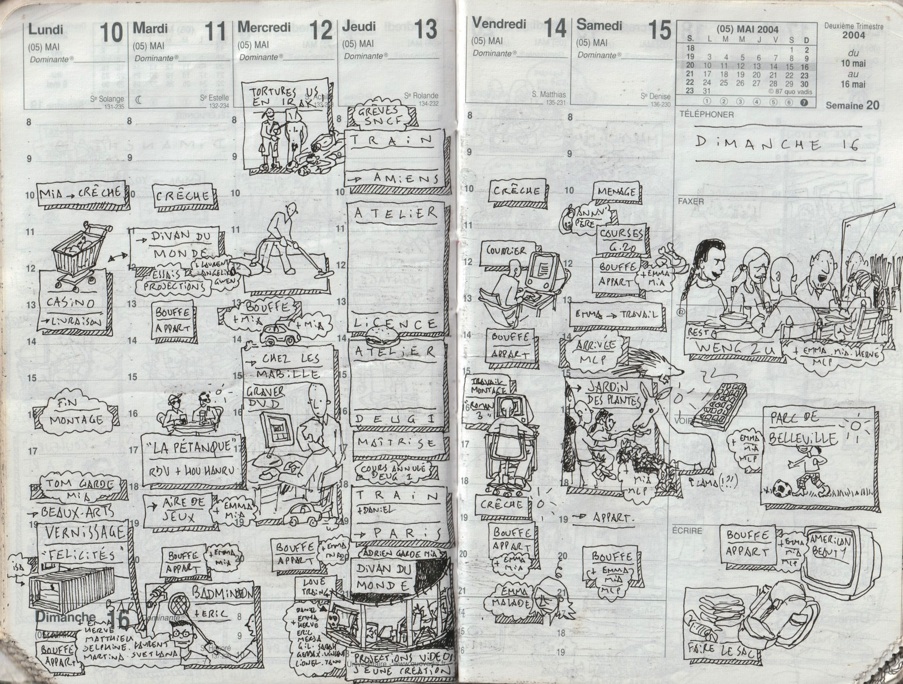 Lundi 10
(05) MAI
Dominante
Sᵉ Solange
131-235
8
9
10
MIA → CRÊCHE
11
12
CASINO
13
→ LIVRAISON
14
15
FIN
MONTAGE
16
17
TOM GARDE
MIA
18
→ BEAUX-ARTS
19
VERNISSAGE
"FELICITÉS"
Dimanche 16
BOUFFE
APPART
HERVÉ
MATTHIEU
DELPHINE LAURENT
MARTINA SVETLANA
Mardi 11
(05) MAI
Dominante
Sᵉ Estelle
132-234
CRÊCHE
→ DIVAN DU
MONDE
ESSAIS
PROJECTIONS GWEN
BOUFFE
APPART
"LA PÉTANQUE"
RDV + HOU HANRU
→ AIRE DE
JEUX
+ EMMA
MIA
BOUFFE
APPART
+ EMMA
MIA
BADMINTON
+ ERIC
Mercredi 12
(05) MAI
Dominante
TORTURES US
EN IRAK
BOUFFE
+ MIA
+ MIA
→ CHEZ LES
MABILLE
GRAVER
DVD
BOUFFE
APPART
LOVE
Jeudi 13
(05) MAI
Dominante
Sᵉ Rolande
134-232
GRÈVES
SNCF
TRAIN
→ AMIENS
ATELIER
LICENCE
ATELIER
DEUG 1
MAÎTRISE
COURS ANNULÉ
DEUG 1
TRAIN
+ DANIEL
→ PARIS
ADRIEN GARDE MIA
DIVAN DU
MONDE
PROJECTIONS VIDEO
JEUNE CRÉATION
Vendredi 14
(05) MAI
Dominante
S. Matthias
135-231
CRÊCHE
COURRIER
BOUFFE
APPART
TRAVAIL
MONTAGE
CRÊCHE
BOUFFE
APPART
+ EMMA
MIA
EMMA
MALADE
Samedi 15
(05) MAI
Dominante
Sᵉ Denise
136-230
MENAGE
ANNIV
PÈRE
COURSES
G.20
BOUFFE
APPART
+ EMMA
MIA
EMMA → TRAVAIL
ARRIVÉE
MLP
→ JARDIN
DES PLANTES
MIA
MLP
LAMA (!?)
+ EMMA
MIA
MLP
→ APPART.
BOUFFE
APPART
+ EMMA
MIA
MLP
(05) MAI 2004
S. L M M J V S D
18 1 2
19 3 4 5 6 7 8 9
20 10 11 12 13 14 15 16
21 17 18 19 20 21 22 23
22 24 25 26 27 28 29 30
23 31 © 87 quo vadis
1 2 3 4 5 6 7
Deuxième Trimestre
2004
du
10 mai
au
16 mai
Semaine 20
TÉLÉPHONER
DIMANCHE 16
FAXER
RESTO
WENG ZU
+ EMMA MIA HERVÉ
MLP
PARC DE
BELLEVILLE
ÉCRIRE
BOUFFE
APPART
+ EMMA
MIA
MLP
AMERICAN
BEAUTY
FAIRE LE SAC